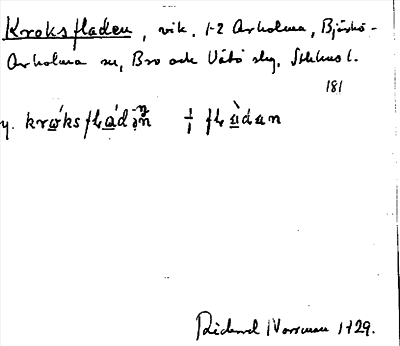 Kroksfladen, vik, 1-2 Arholma, Björkö-
Arholma sn, Bro och Vätö skg, Sthlms l.
181
y. krώksflàdən ÷ flàdan
Rickard Norrman 1929.